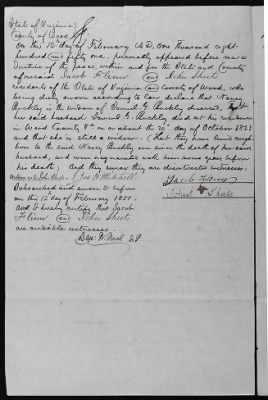 State of Virginia
County of Wood
On this 12 day of February A.D. one thousand eight
hundred and fifty one, personally appeared before me a
Justice of the peace, within and for the State and County
aforesaid Jacob Fleum and John Sheets
residents of the State of Virginia and County of Wood, who
being duly sworn according to law declare that Nancy
Buckley is the widow of Samuel G. Buckley deceased, that
her said husband Samuel G. Buckley died at his residence
in Wood County Va on or about the 20th day of October 1828
and that she is still a widow. (That they have lived neigh-
bor to the said Nancy Buckley ever since the death of her said
husband, and were acquainted with him some years before
his death) And they swear they are disinterested witnesses.
Witness as to John Sheets Jas W Mitchell
Jacob Fleum
John Sheets
Subscribed and sworn to before
me this 12 day of February 1851.
and I hereby certify that Jacob
Fleum and John Sheets
are credible witnesses.
Neal J.P.